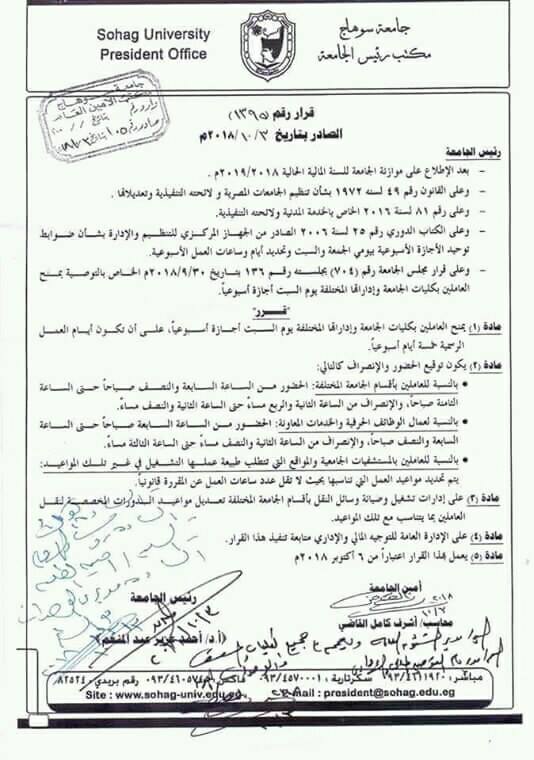 Sohag University
President Office
جامعة سوهاج
مكتب رئيس الجامعة
قرار رقم (١٣٩٥)
الصادر بتاريخ ٢٠١٨/١٠/٣م
رئيس الجامعة
– بعد الإطلاع على موازنة الجامعة للسنة المالية الحالية ٢٠١٩/٢٠١٨م .
– وعلى القانون رقم ٤٩ لسنه ١٩٧٢ بشأن تنظيم الجامعات المصرية و لائحته التنفيذية وتعديلاتها .
– وعلى رقم ٨١ لسنة ٢٠١٦ الخاص بالخدمة المدنية ولائحته التنفيذية.
– وعلى الكتاب الدوري رقم ٢٥ لسنة ٢٠٠٦ الصادر من الجهاز المركزي للتنظيم والإدارة بشأن ضوابط
توحيد الأجازة الأسبوعية بيومي الجمعة والسبت وتحديد أيام وساعات العمل الأسبوعية.
– وعلى قرار مجلس الجامعة رقم (٧٠٤) بجلسته رقم ١٣٦ بتاريخ ٢٠١٨/٩/٣٠م الخاص بالتوصية بمنح
العاملين بكليات الجامعة وإداراتها المختلفة يوم السبت أجازة أسبوعياً.
"قرر"
مادة (١) يمنح العاملين بكليات الجامعة وإداراتها المختلفة يوم السبت أجازة أسبوعياً، على أن تكون أيام العمل
الرسمية خمسة أيام أسبوعياً.
مادة (٢) يكون توقيع الحضور والإنصراف كالتالي:
• بالنسبة للعاملين بأقسام الجامعة المختلفة: الحضور من الساعة السابعة والنصف صباحاً حتى الساعة
الثامنة صباحاً، والإنصراف من الساعة الثانية والربع مساءً حتى الساعة الثانية والنصف مساءً.
• بالنسبة لعمال الوظائف الحرفية والخدمات المعاونة: الحضور من الساعة السابعة صباحاً حتى الساعة
السابعة والنصف صباحاً، والإنصراف من الساعة الثانية والنصف مساءً حتى الساعة الثالثة مساءً.
• بالنسبة للعاملين بالمستشفيات الجامعية والمواقع التي تتطلب طبيعة عملها التشغيل في غير تلك المواعيد:
يتم تحديد مواعيد العمل التي تناسبها بحيث لا تقل عدد ساعات العمل عن المقررة قانونياً.
مادة (٣) على إدارات تشغيل وصيانة وسائل النقل بأقسام الجامعة المختلفة تعديل مواعيد السدورات المخصصة لنقل
العاملين بما يتناسب مع تلك المواعيد.
مادة (٤) على الإدارة العامة للتوجيه المالي والإداري متابعة تنفيذ هذا القرار.
مادة (٥) يعمل بهذا القرار اعتباراً من ٦ أكتوبر ٢٠١٨م
أمين الجامعة
رئيس الجامعة
محاسب/ أشرف كامل القاضي
(أ.د/ أحمد عزيز عبد المنعم)
مباشر: ٠٩٣/٤٦١١٩٢٠ سكرتارية: ٠٩٣/٤٥٧٠٠٠١ رقم بريدي: ٨٢٥٢٤
Site : www.sohag-univ.edu.eg
E-mail : president@sohag.edu.eg